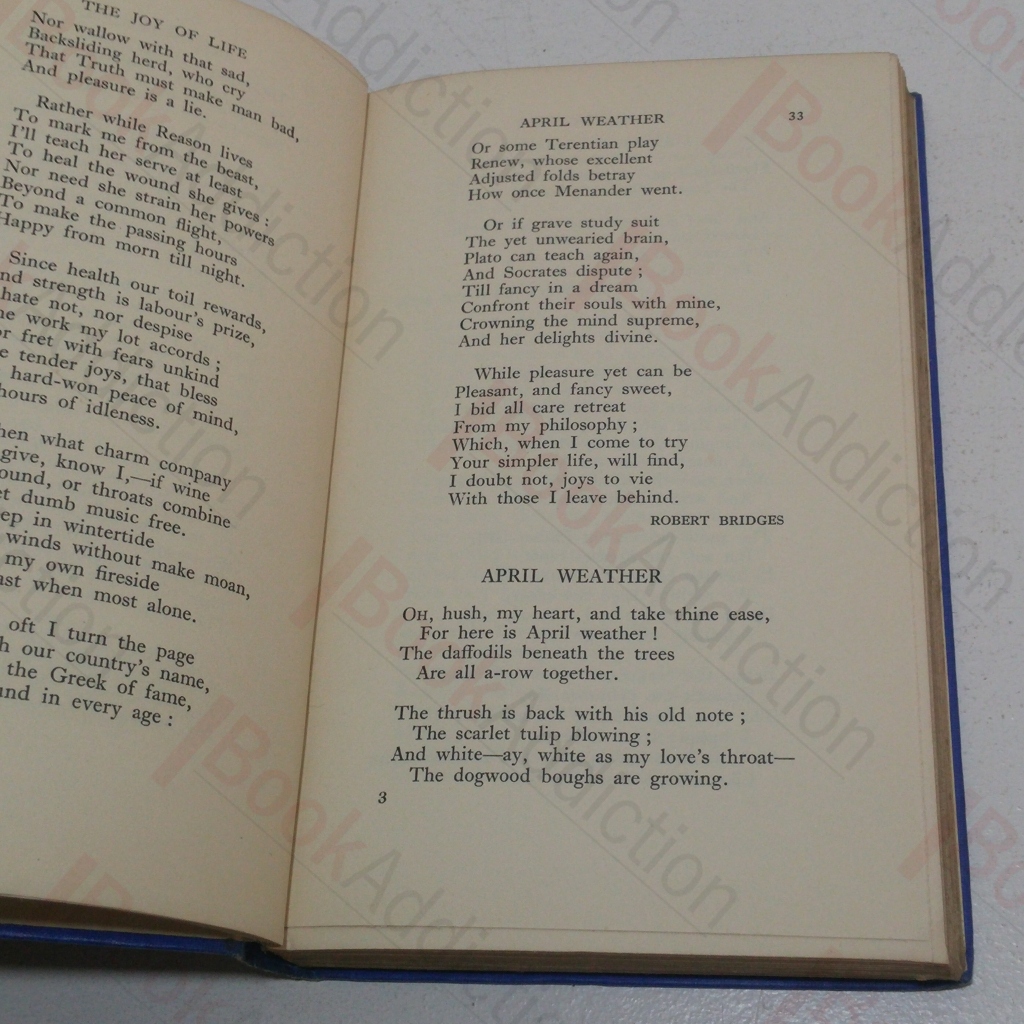 THE JOY OF LIFE
Nor wallow with that sad,
Backsliding herd, who cry
That Truth must make man bad,
And pleasure is a lie.
Rather while Reason lives
To mark me from the beast,
I'll teach her serve at least
To heal the wound she gives :
Nor need she strain her powers
Beyond a common flight,
To make the passing hours
Happy from morn till night.
Since health our toil rewards,
nd strength is labour's prize,
hate not, nor despise
e work my lot accords ;
or fret with fears unkind
e tender joys, that bless
hard-won peace of mind,
hours of idleness.
hen what charm company
give, know I,—if wine
ound, or throats combine
et dumb music free.
ep in wintertide
winds without make moan,
my own fireside
ast when most alone.
oft I turn the page
h our country's name,
the Greek of fame,
und in every age :
APRIL WEATHER 33
Or some Terentian play
Renew, whose excellent
Adjusted folds betray
How once Menander went.
Or if grave study suit
The yet unwearied brain,
Plato can teach again,
And Socrates dispute ;
Till fancy in a dream
Confront their souls with mine,
Crowning the mind supreme,
And her delights divine.
While pleasure yet can be
Pleasant, and fancy sweet,
I bid all care retreat
From my philosophy ;
Which, when I come to try
Your simpler life, will find,
I doubt not, joys to vie
With those I leave behind.
ROBERT BRIDGES
APRIL WEATHER
OH, hush, my heart, and take thine ease,
For here is April weather !
The daffodils beneath the trees
Are all a-row together.
The thrush is back with his old note ;
The scarlet tulip blowing ;
And white—ay, white as my love's throat—
The dogwood boughs are growing.
3
BookAddiction